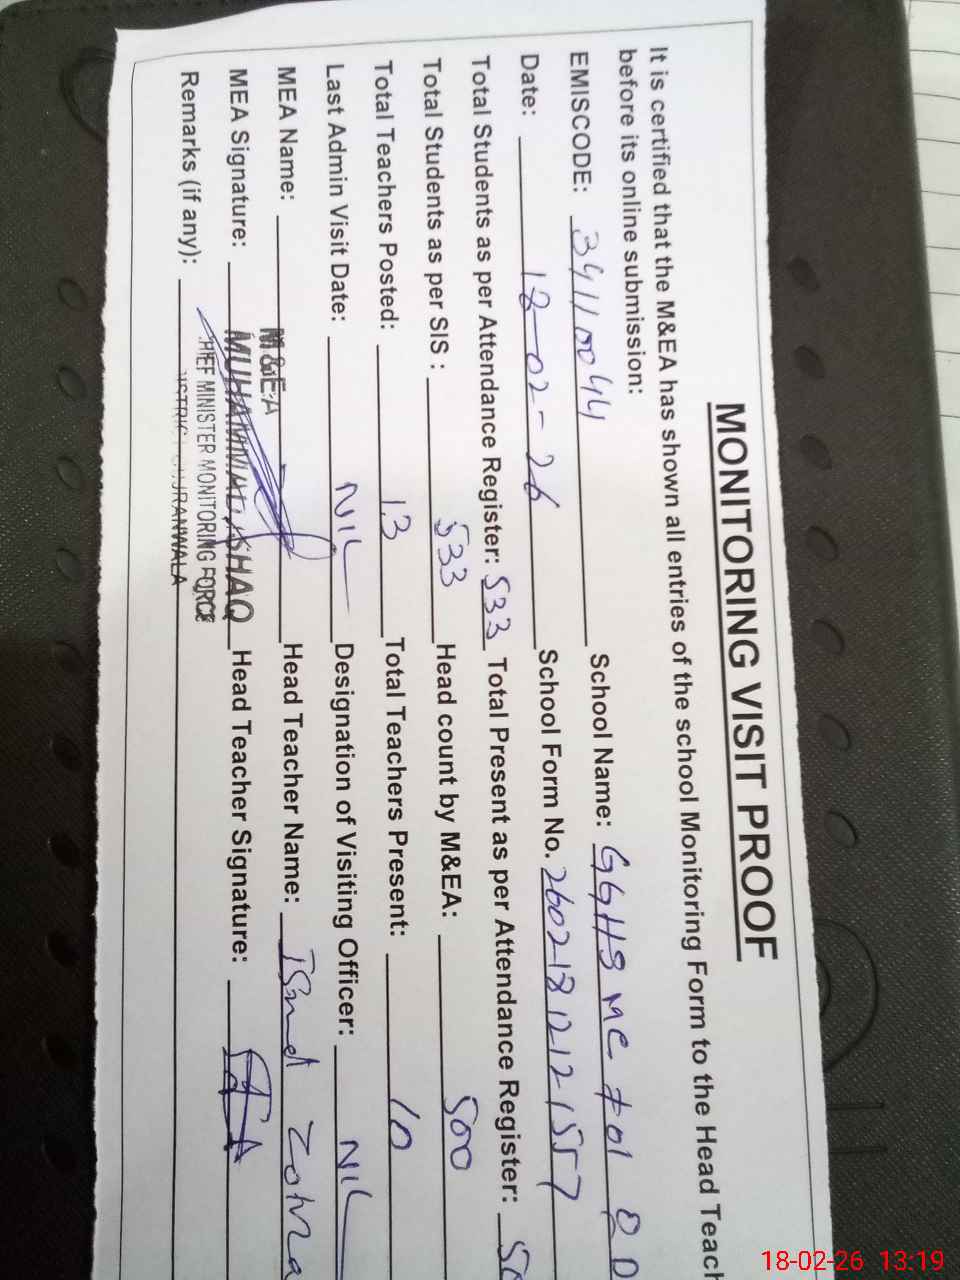 MONITORING VISIT PROOF
It is certified that the M&EA has shown all entries of the school Monitoring Form to the Head Teach
before its online submission:
EMISCODE: 34110044 School Name: GGHS MC #01
Date: 18-02-26 School Form No. 2602181212157
Total Students as per Attendance Register: 533 Total Present as per Attendance Register:
Total Students as per SIS : 533 Head count by M&EA: 500
Total Teachers Posted: 13 Total Teachers Present: 10
Last Admin Visit Date: NIL Designation of Visiting Officer: NIL
MEA Name: M&EA Head Teacher Name: Zohra
MEA Signature: MUHAMMAD ISHAQ Head Teacher Signature:
Remarks (if any): CHIEF MINISTER MONITORING FORCE
DISTRICT GUJRANWALA
18-02-26 13:19